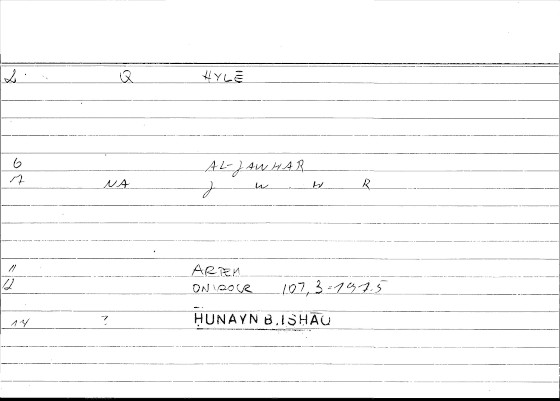 2 Q HYLĒ
6 AL-JAWHAR
7 NA J W H R
11 ARTEM
12 ONIROCR 107,3=191.5
14 ? ḤUNAYN B. ISḤĀQ